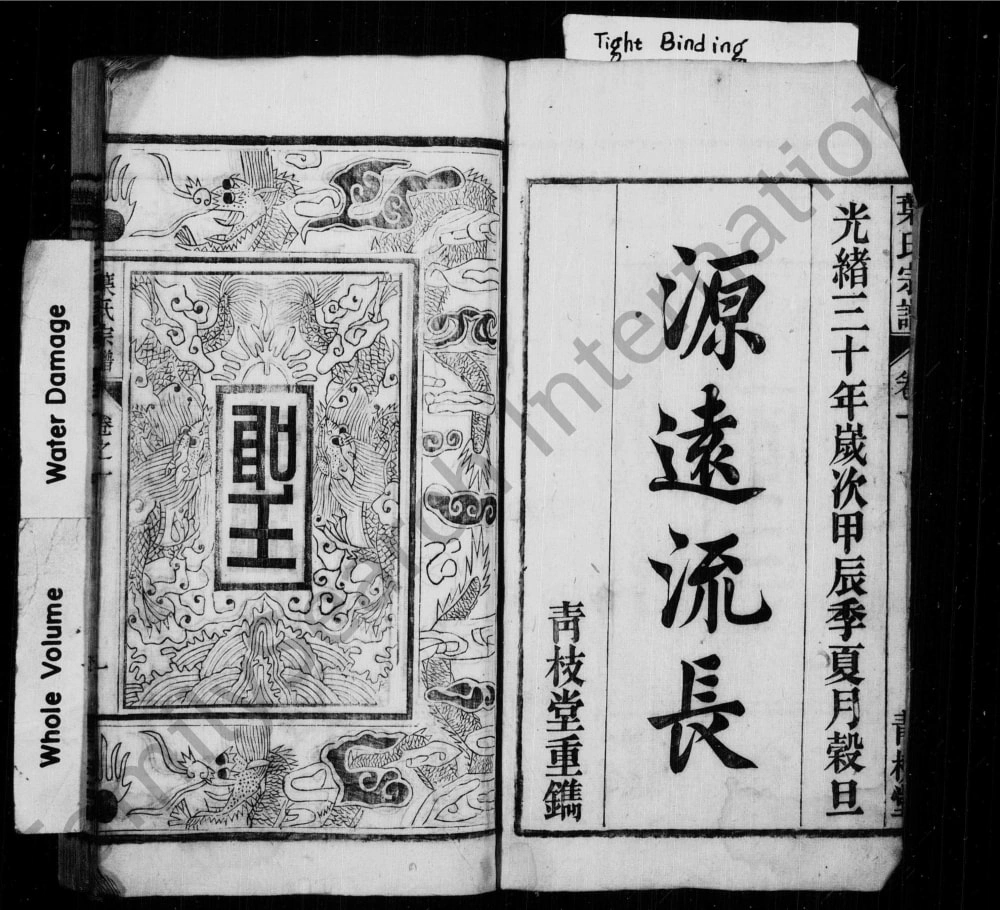 Tight Binding
葉氏宗譜 卷一 青枝堂
光緒三十年歲次甲辰季夏月穀旦
源遠流長
青枝堂重鐫
聖
葉氏宗譜 卷之一
Water Damage
Whole Volume
FamilySearch International